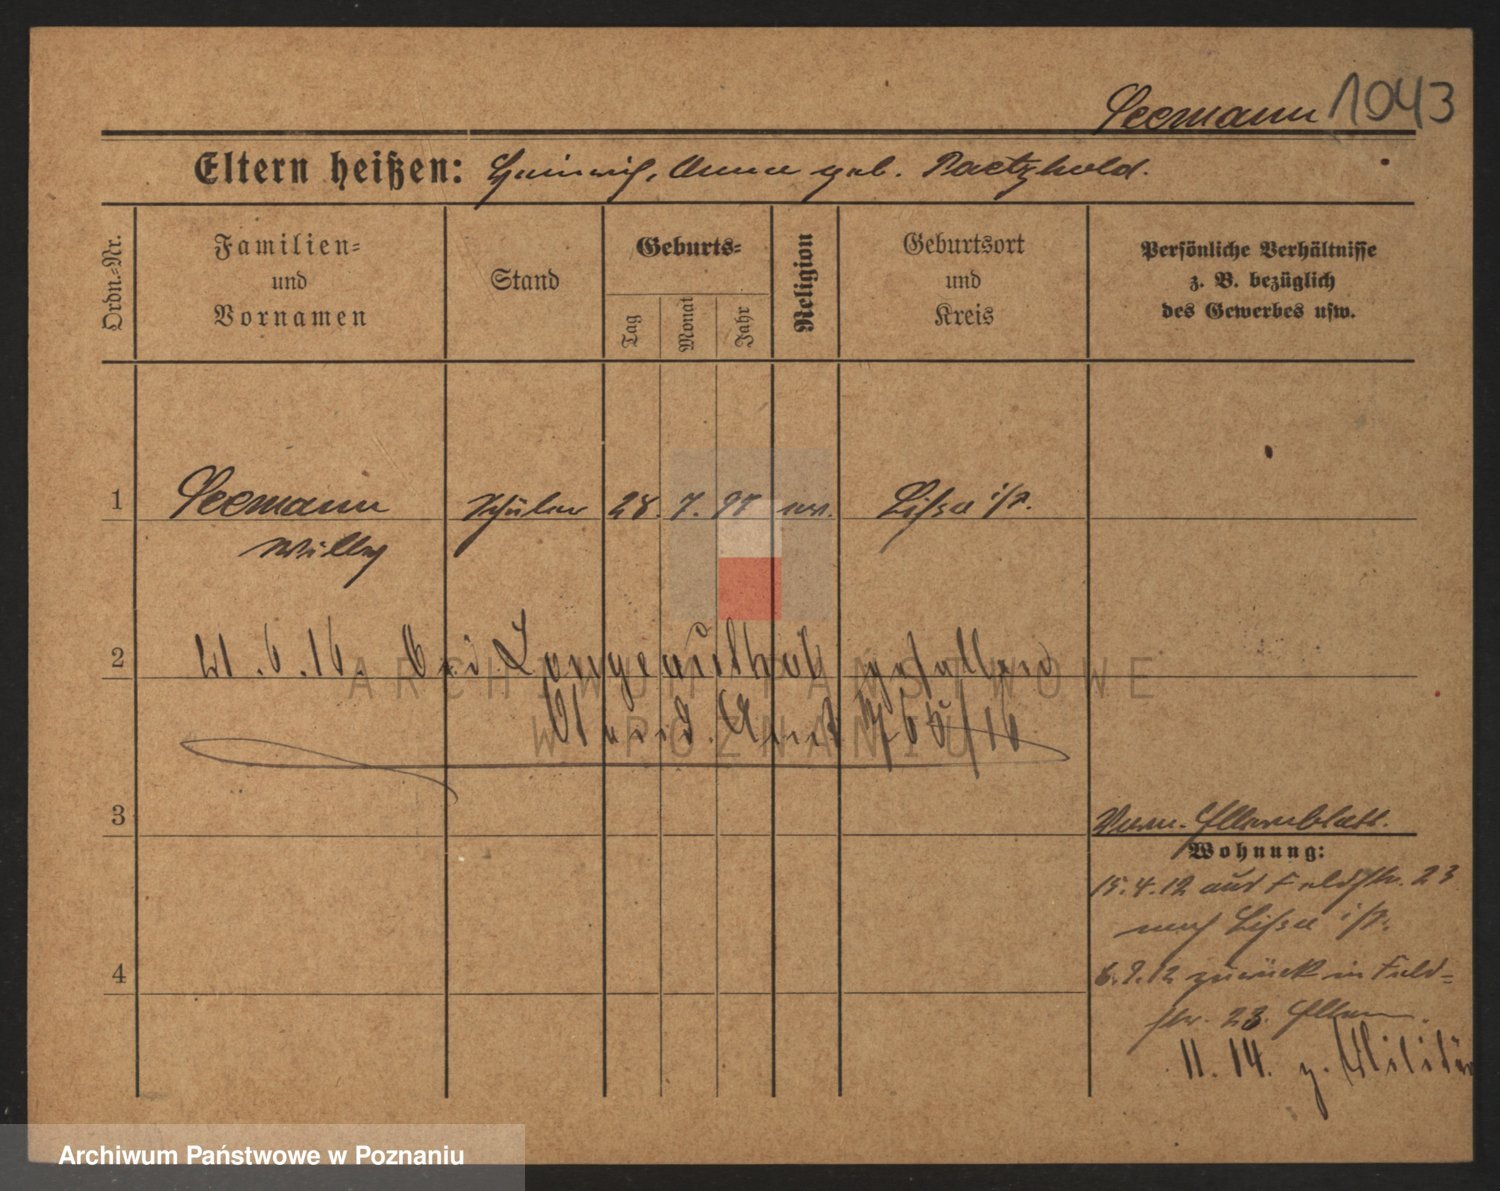 Seemann 1043
Eltern heißen: Heinrich, Anna geb. Paetzhold.
Ordn.-Nr.
Familien-
und
Vornamen
Stand
Geburts-
Tag
Monat
Jahr
Religion
Geburtsort
und
Kreis
Persönliche Verhältnisse
z. B. bezüglich
des Gewerbes usw.
1 Seemann Schüler 28. 7. 97 ev. Lissa i/P.
Willy
2 21.6.16. bei gefallen
Stand. Amt 765/16
3
Verm. Elternblatt.
Wohnung:
15.4.12 aus Feldstr. 23
nach Lissa i/P.
6.9.12 zurück in Feld-
str. 23. Eltern.
4
11. 14. z. Militär
ARCHIWUM PAŃSTWOWE
W POZNANIU
Archiwum Państwowe w Poznaniu